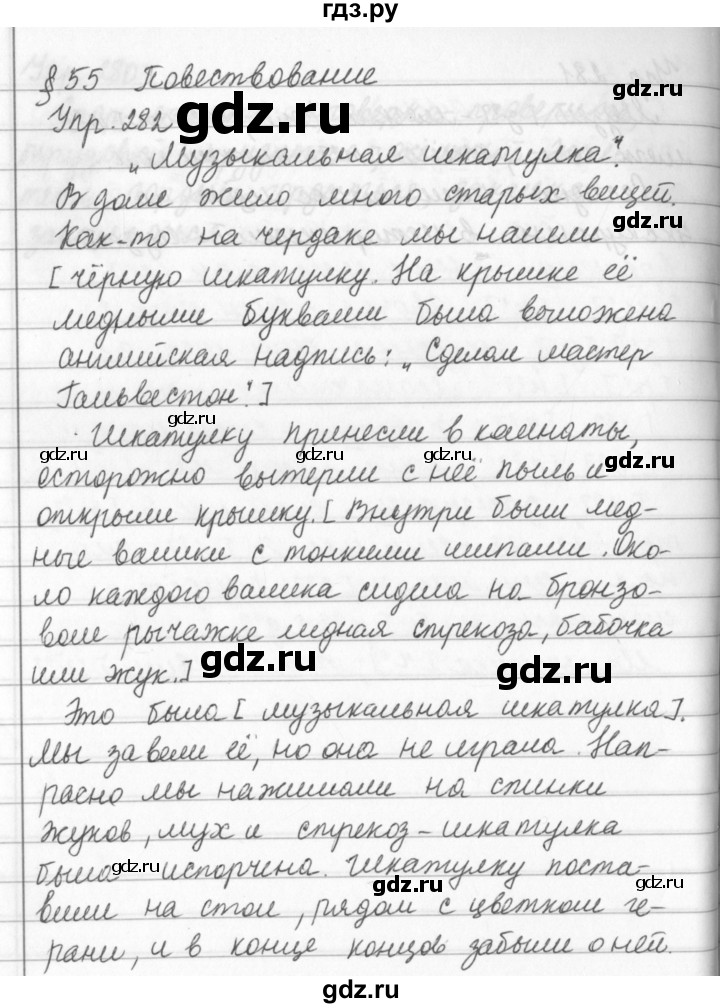 гдз.ру
§ 55 Повествование
Упр. 282
gdz.ru
„Музыкальная шкатулка“.
gdz.ru
В доме жило много старых вещей.
Как-то на чердаке мы нашли
[чёрную шкатулку. На крышке её
gdz.ru
медными буквами была выложена
gdz.ru
английская надпись: „Сделал мастер
Гальвестон“.]
gdz.ru
Шкатулку принесли в комнаты,
gdz.ru gdz.ru gdz.ru
осторожно вытерли с неё пыль и
открыли крышку. [Внутри были мед-
ные валики с тонкими шипами. Око-
gdz.ru
ло каждого валика сидела на бронзо-
вом рычажке медная стрекоза, бабочка
gdz.ru gdz.ru
или жук.]
Это была [музыкальная шкатулка].
Мы завели её, но она не играла. Нап-
расно мы нажимали на спинки
жуков, мух и стрекоз - шкатулка
была испорчена. Шкатулку поста-
gdz.ru gdz.ru gdz.ru
вили на стол, рядом с цветком ге-
рани, и в конце концов забыли о ней.
gdz.ru